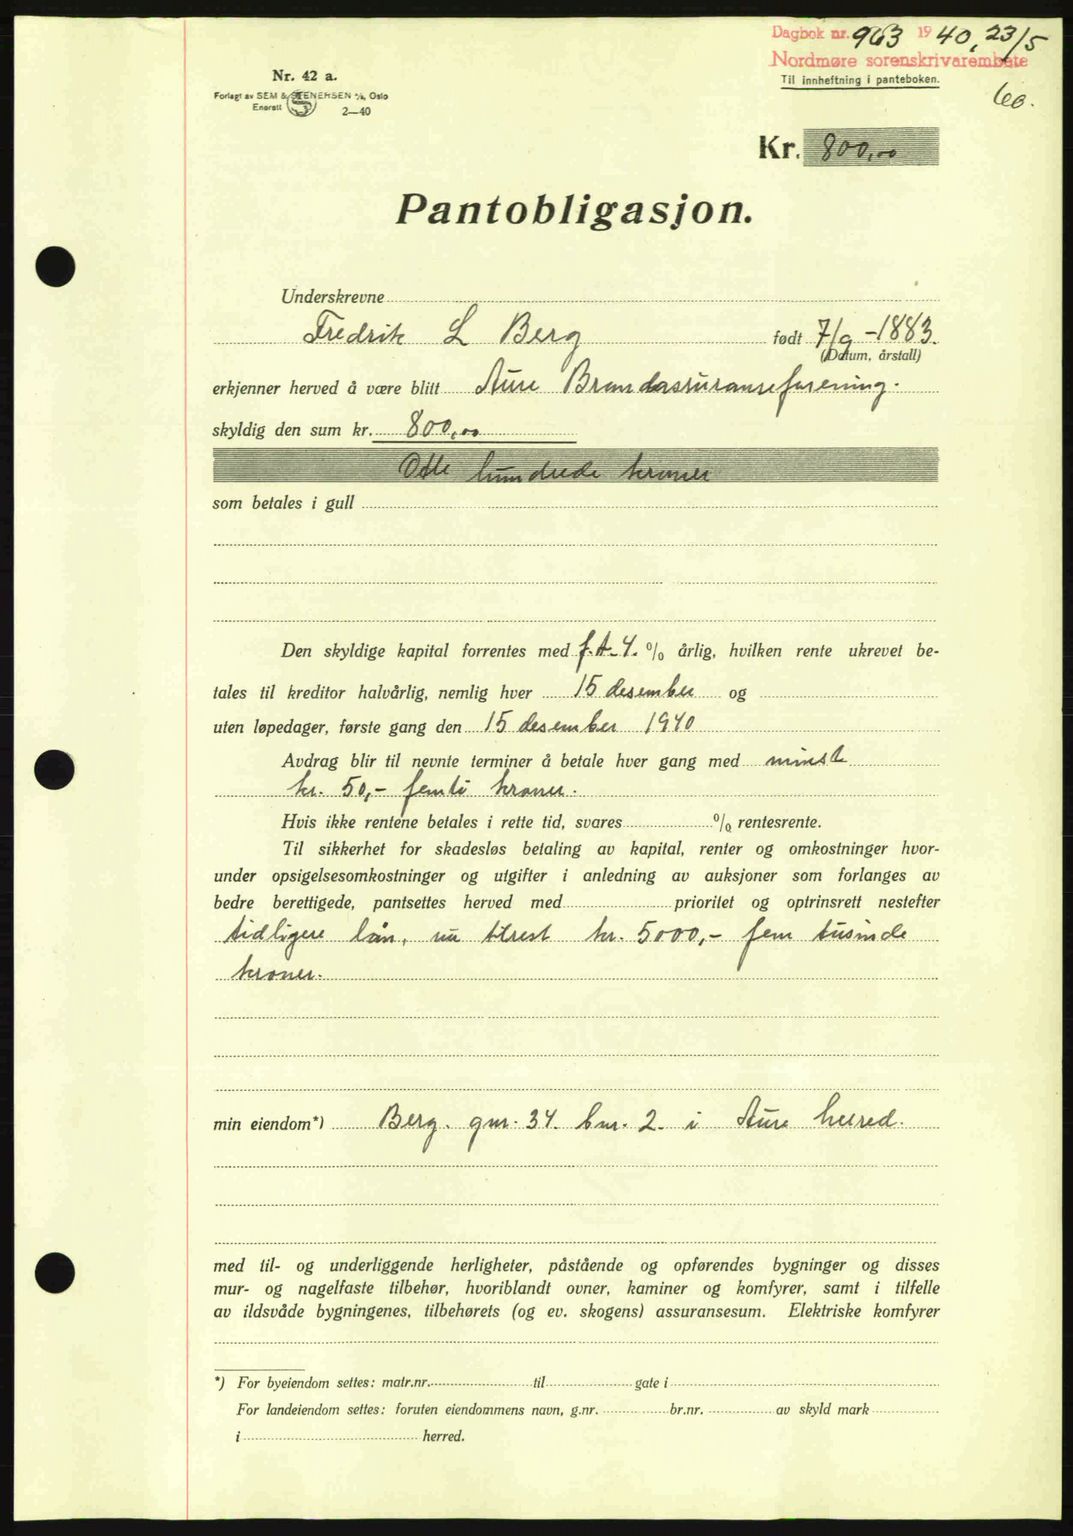 Dagbok nr. 963 1940, 23/5
Nordmøre sorenskrivarembæte
Til innheftning i panteboken.
60.
Nr. 42 a.
Forlagt av SEM & STENERSEN A/S, Oslo
Enerett
2—40
Kr. 800,00
Pantobligasjon.
Underskrevne
Fredrik L Berg født 7/9 - 1883.
(Datum, årstall)
erkjenner herved å være blitt Aure Brandassuranseforening.
skyldig den sum kr. 800,00
Otte hundrede kroner
som betales i gull
Den skyldige kapital forrentes med f.t. 4. % årlig, hvilken rente ukrevet be-
tales til kreditor halvårlig, nemlig hver 15 desember og
uten løpedager, første gang den 15 desember 1940
Avdrag blir til nevnte terminer å betale hver gang med minst
kr. 50,- femti kroner.
Hvis ikke rentene betales i rette tid, svares % rentesrente.
Til sikkerhet for skadesløs betaling av kapital, renter og omkostninger hvor-
under opsigelsesomkostninger og utgifter i anledning av auksjoner som forlanges av
bedre berettigede, pantsettes herved med prioritet og optrinsrett nestefter
tidligere lån, nu kr. 5000,- fem tusinde
kroner.
min eiendom*) Berg. gnr. 34. bnr. 2. i Aure herred.
med til- og underliggende herligheter, påstående og opførendes bygninger og disses
mur- og nagelfaste tilbehør, hvoriblandt ovner, kaminer og komfyrer, samt i tilfelle
av ildsvåde bygningenes, tilbehørets (og ev. skogens) assuransesum. Elektriske komfyrer
*) For byeiendom settes: matr.nr. til gate i
For landeiendom settes: foruten eiendommens navn, g.nr. br.nr. av skyld mark
i herred.